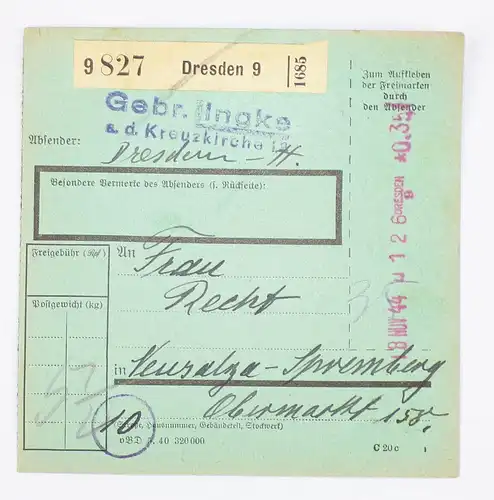 9 827 Dresden 9 1685
Gebr. Jingke
a. d. Kreuzkirche
Absender: Dresden-A.
Zum Aufkleben
der Freimarken
durch
den Absender
Besondere Vermerke des Absenders (s. Rückseite):
Freigebühr (Rpf)
Postgewicht (kg)
An Frau
Recht
in Neusalza-Spremberg
Obermarkt 15
10
(Straße, Hausnummer, Gebäudeteil, Stockwerk)
OBD F. 40 320000
C 20c
8 NOV 44
DRESDEN
9
*0.35